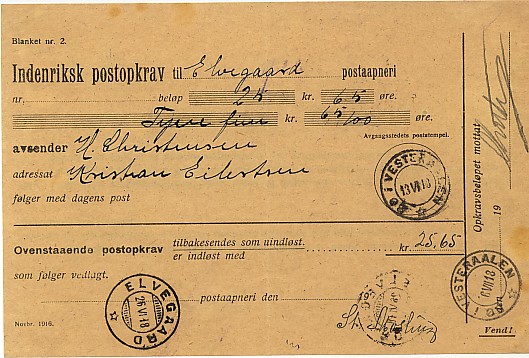 Blanket nr. 2.
Indenriksk postopkrav til Elvegaard postaapneri
nr. beløp 25 kr. 65 øre.
Tyve fem kr. 65/00 øre.
Avgangsstedets poststempel.
avsender H. Christensen
adressat Kristian Eilertsen
følger med dagens post
BØ I VESTERAALEN
13 VI 18
Ovenstaaende postopkrav tilbakesendes som uindløst.
er indløst med kr. 25,65
som følger vedlagt.
postaapneri den
ELVEGAARD
26 VI 18
Novbr. 1916.
Opkravsbeløpet mottat
19
BØ I VESTERAALEN
VI 18
Vend!